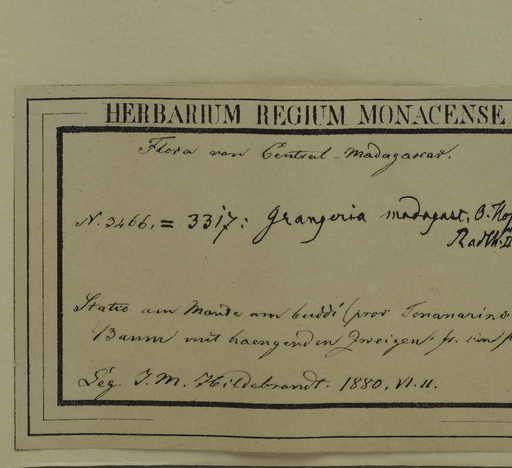 HERBARIUM REGIUM MONACENSE.
Flora von Central-Madagascar.
N. 3466. = 3317: Grangeria madagasc. O. Hof
Radlk. II
Statio am Wande am (prov Tananarivo
Baum mit haengenden Zweigen. fr.
Leg. J. M. Hildebrandt. 1880. VI. 11.